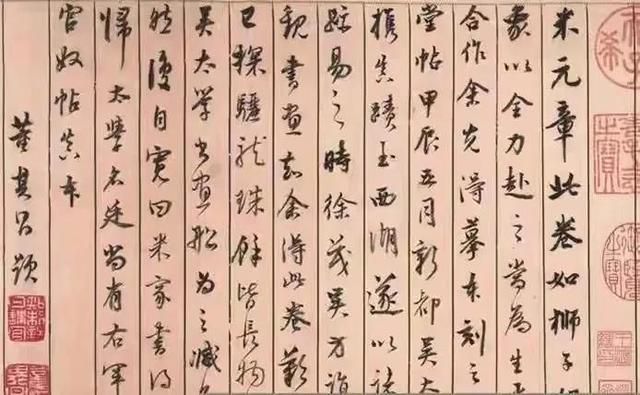 米元章此卷如獅子
象以全力赴之當為生
合作余先得摹本刻之
堂帖甲辰五月新都吳太
携真蹟至西湖遂以諸
跡易之時徐茂吳方詣
觀書畫知余得此卷歎
已探驪龍珠餘皆長物
吳太學書畫船為之減
然復自寬曰米家書得
歸太學名廷尚有右軍
官奴帖真本
董其昌題